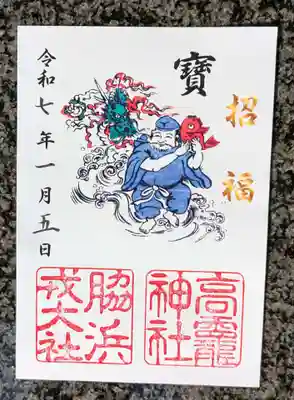 招福
寳
令和七年一月五日
高龗神社
脇浜戎大社